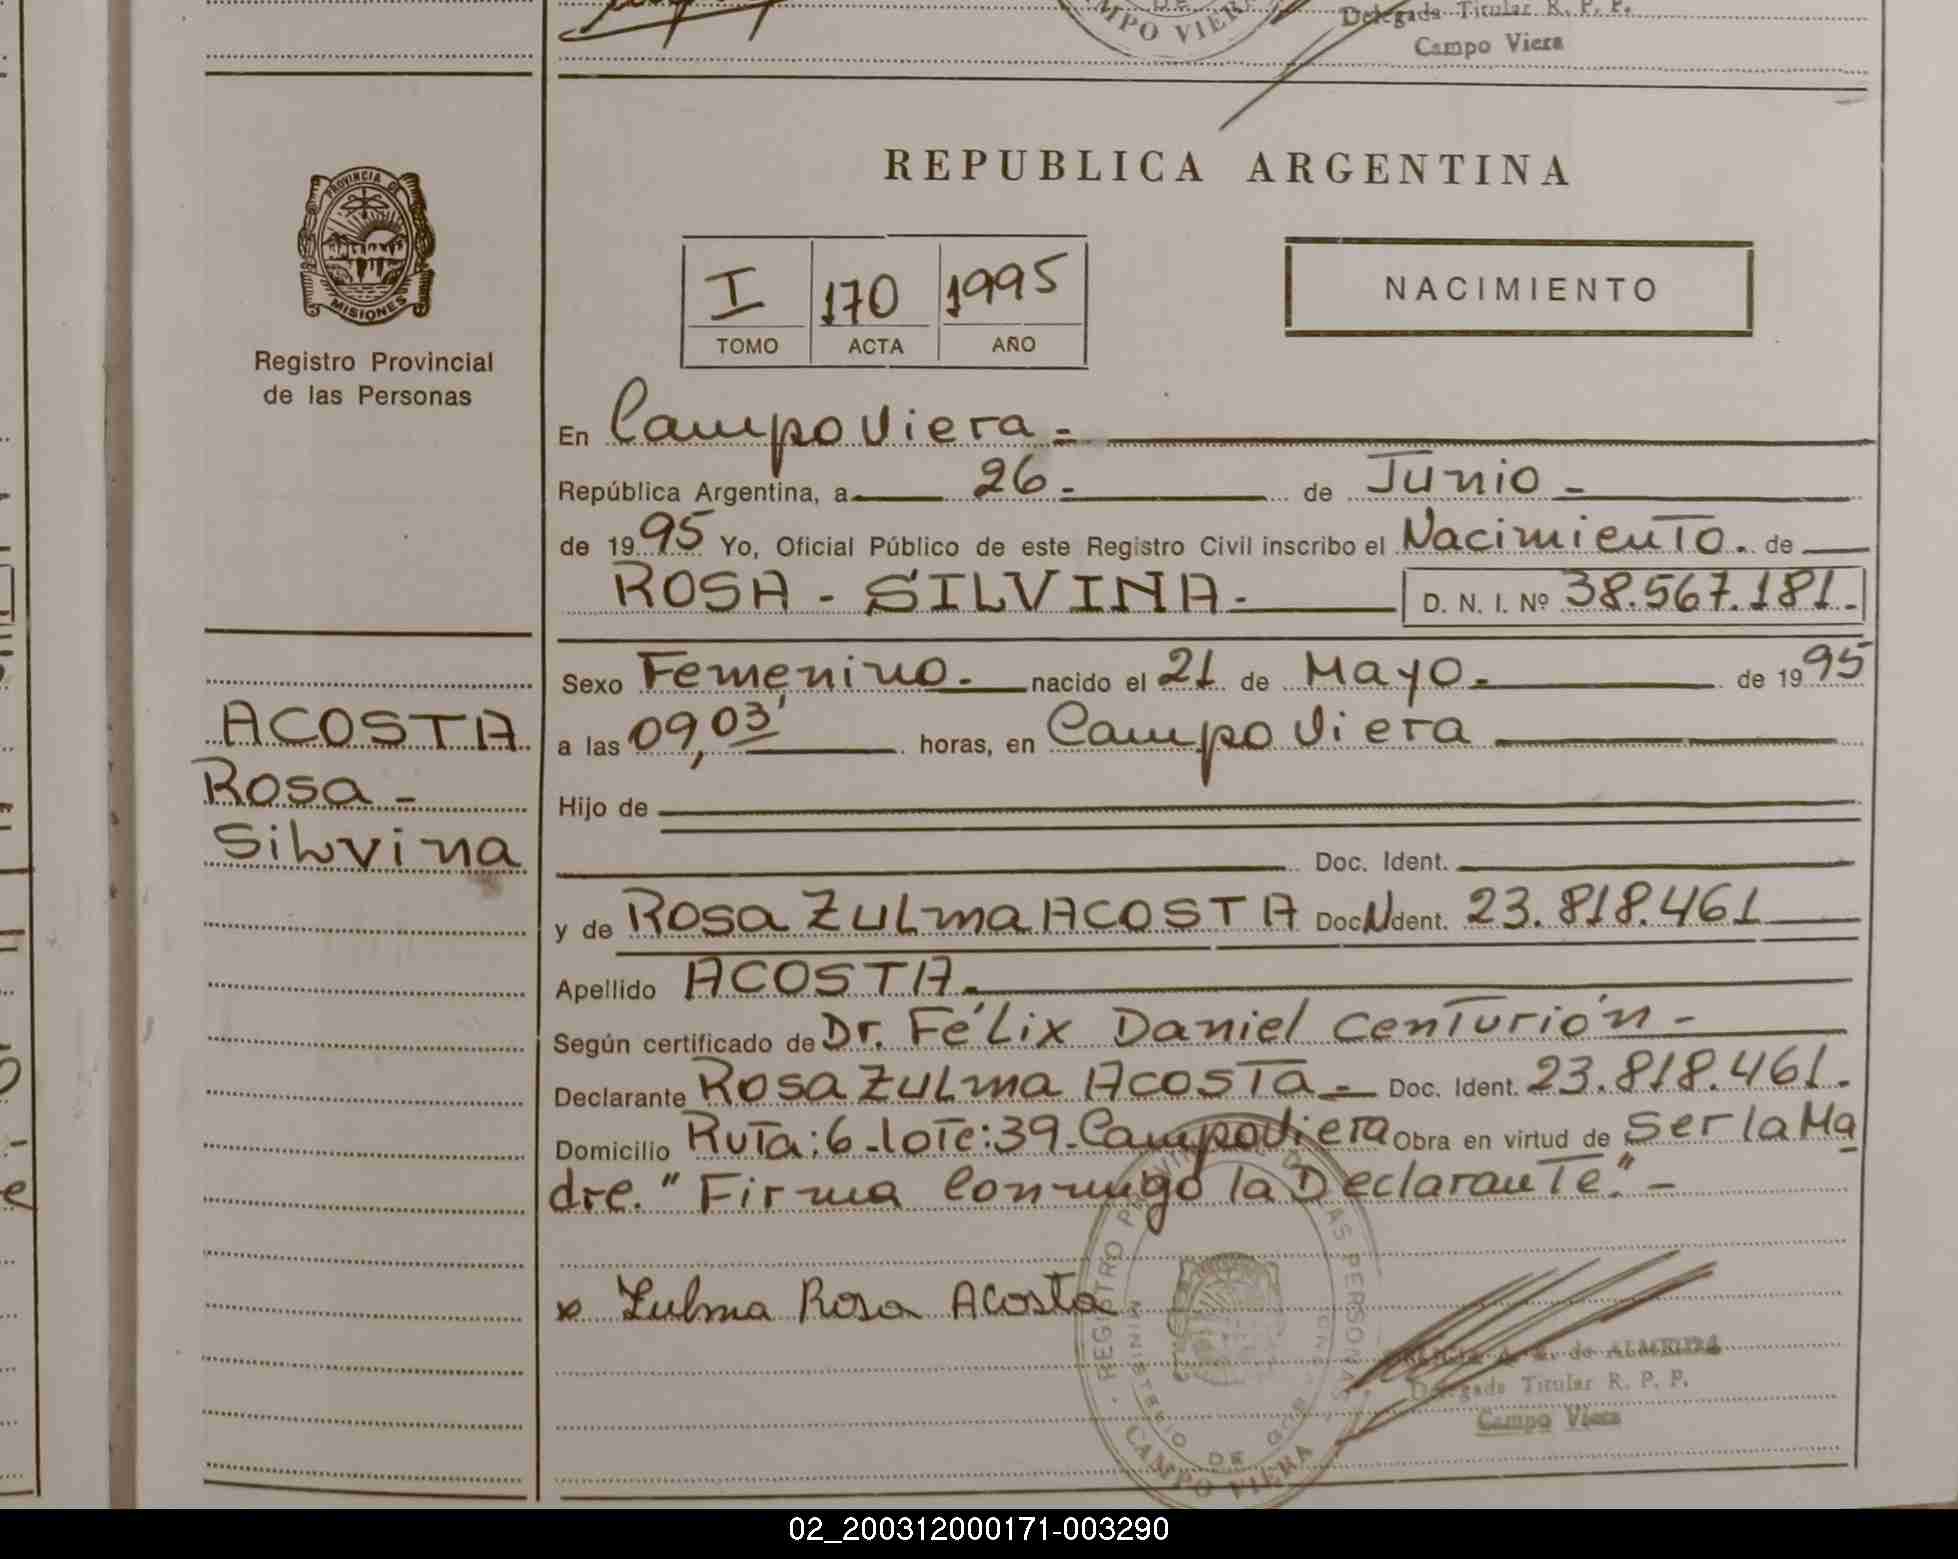 CAMPO VIERA
Delegada Titular R. P. P.
Campo Viera
PROVINCIA DE
MISIONES
Registro Provincial
de las Personas
REPUBLICA ARGENTINA
I 170 1995
TOMO ACTA AÑO
NACIMIENTO
En Campo Viera -
República Argentina, a 26 - de Junio -
de 1995 Yo, Oficial Público de este Registro Civil inscribo el Nacimiento. de
ROSA - SILVINA - D. N. I. Nº 38.567.181.-
Sexo Femenino.- nacido el 21 de Mayo.- de 1995
a las 09,03' horas, en Campo Viera
Hijo de
Doc. Ident.
y de Rosa Zulma ACOSTA Doc. Ident. 23.818.461
Apellido ACOSTA.-
Según certificado de Dr. Félix Daniel Centurión -
Declarante Rosa Zulma Acosta - Doc. Ident. 23.818.461.-
Domicilio Ruta:6-lote:39-Campo Viera Obra en virtud de Ser la Ma
dre. "Firma Conmigo la Declarante." -
x Zulma Rosa Acosta
ACOSTA
Rosa -
Silvina
REGISTRO PROVINCIAL DE LAS PERSONAS
MINISTERIO DE GOB
CAMPO VIERA
de ALMEIDA
Delegada Titular R. P. P.
Campo Viera
02_200312000171-003290